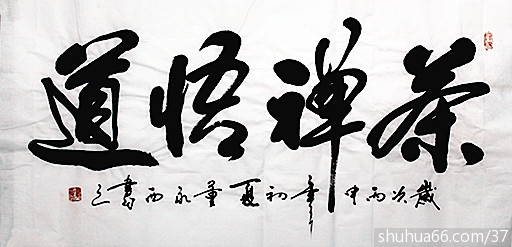 茶禅悟道
歲次丙申年初夏董永西書之
shuhua66.com/37